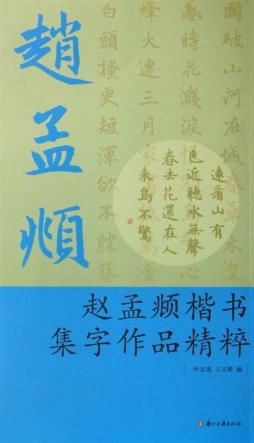 趙孟頫
國破山河在城春草木深
感時花濺淚恨
烽火連三月家
白頭搔更短渾欲不勝簪
遠看山有
色近聽水無聲
春去花還在人
來鳥不驚
赵孟頫楷书
集字作品精粹
王义骅 编
浙江古籍出版社